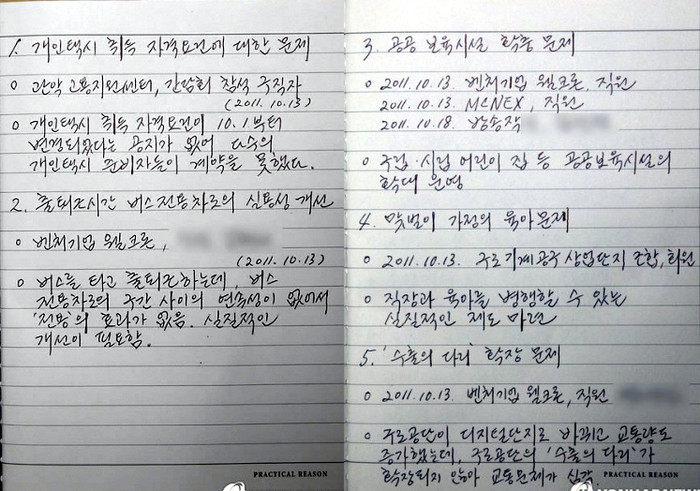 1. 개인택시 취득 자격요건에 대한 문제
o 관악 고용지원센터, 간담회 참석 구직자
(2011. 10. 13)
o 개인택시 취득 자격요건이 10.1부터
변경되었다는 공지가 없어 다수의
개인택시 준비자들이 계약을 못했다.
2. 출퇴근시간 버스전용차로의 실용성 개선
o 벤처기업 웰크론,
(2011. 10. 13)
o 버스를 타고 출퇴근하는데, 버스
전용차로의 구간 사이의 연속성이 없어서
'전용'의 효과가 없음. 실질적인
개선이 필요함.
PRACTICAL REASON
3. 공공 보육시설 확충 문제
o 2011. 10. 13. 벤처기업 웰크론, 직원
2011. 10. 13. McNEX, 직원
2011. 10. 18. 방송작
o 국립·시립 어린이 집 등 공공보육시설의
확대 운영
4. 맞벌이 가정의 육아문제
o 2011. 10. 13. 구로기계공구 상업단지 조합, 회원
o 직장과 육아를 병행할 수 있는
실질적인 제도 마련
5. '수출의 다리' 확장 문제
o 2011. 10. 13. 벤처기업 웰크론, 직원
o 구로공단이 디지털단지로 바뀌고 교통량도
증가했는데, 구로공단의 '수출의 다리'가
확장되지 않아 교통문제가 심각
PRACTICAL REASON